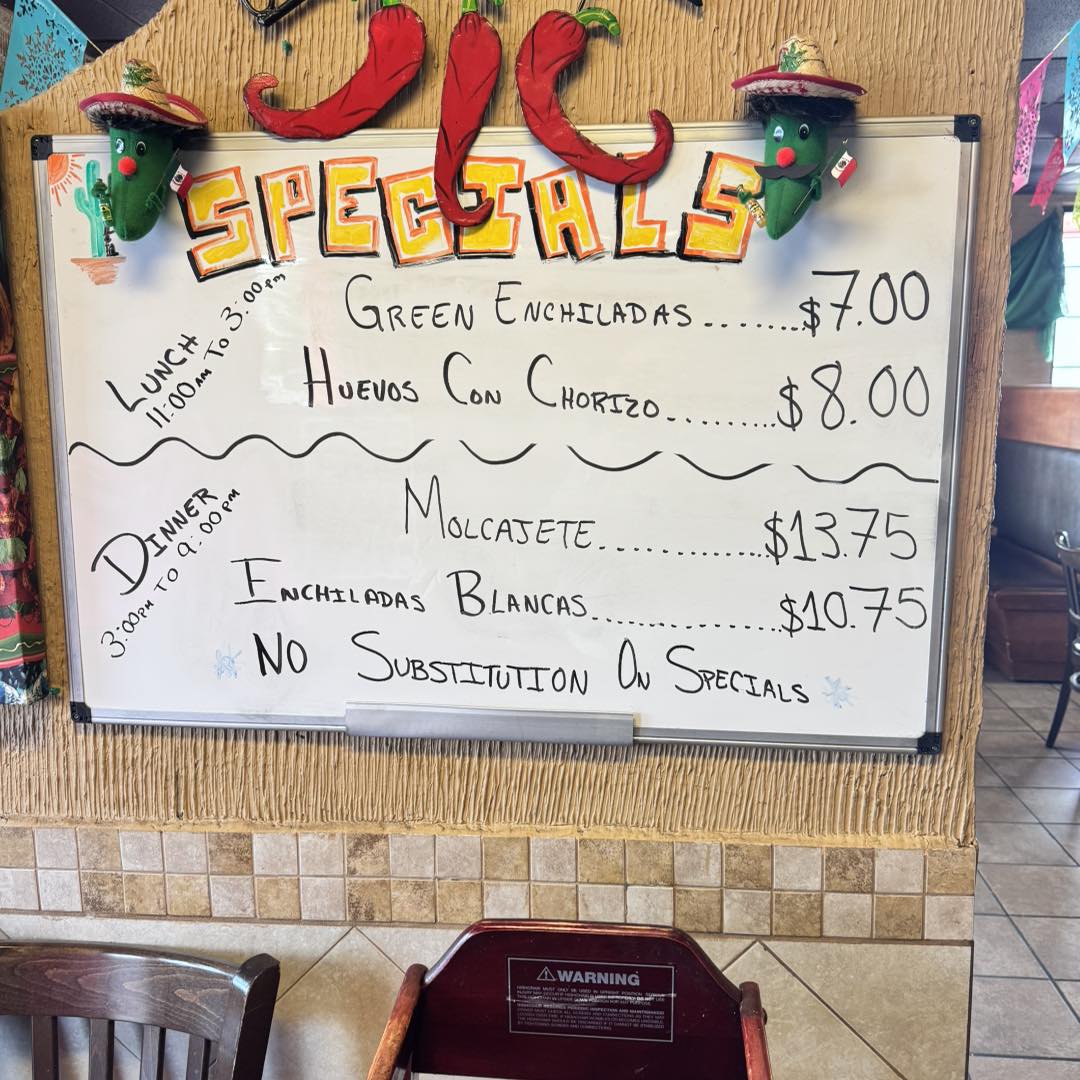 SPECIALS
LUNCH
11:00AM TO 3:00pm
GREEN ENCHILADAS.......$7.00
HUEVOS CON CHORIZO..........$8.00
DINNER
3:00PM TO 9:00PM
MOLCAJETE..............$13.75
ENCHILADAS BLANCAS...............$10.75
NO SUBSTITUTION ON SPECIALS
WARNING